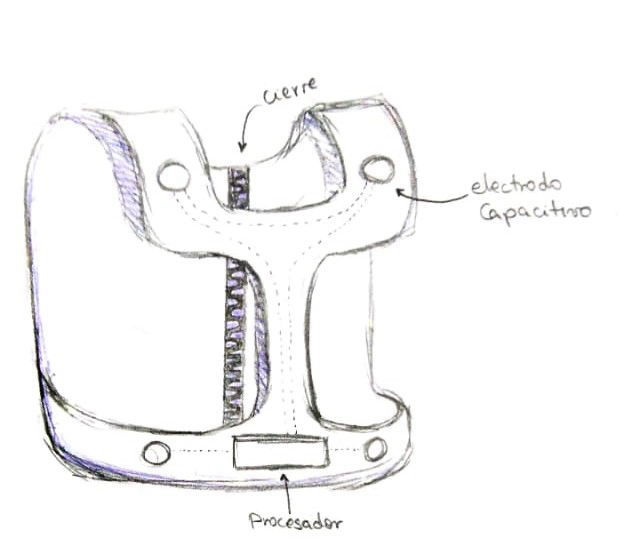 cierre
electrodo
capacitivo
Procesador